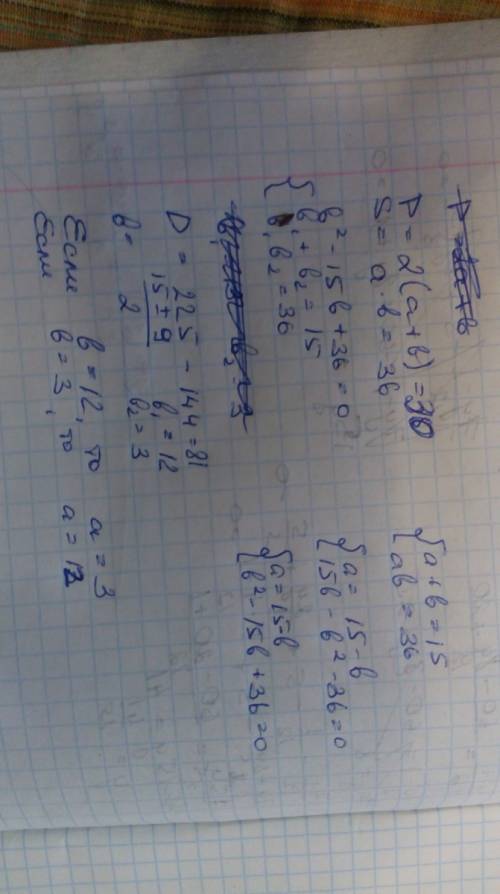 P = 2(a+b) = 30
S = a · b = 36
{ a + b = 15
ab = 36
{ a = 15 - b
15b - b² - 36 = 0
{ a = 15 - b
b² - 15b + 36 = 0
b² - 15b + 36 = 0
{ b₁ + b₂ = 15
b₁ b₂ = 36
D = 225 - 144 = 81
b = (15 ± 9)/2 b₁ = 12
b₂ = 3
Если b = 12, то a = 3
Если b = 3, то a = 12